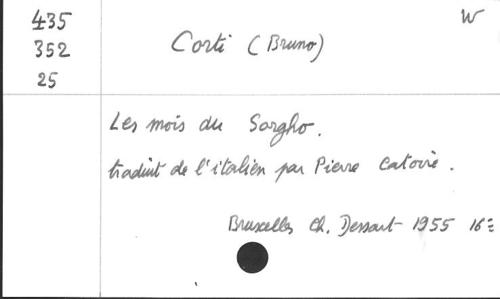 435
W
352
Corti (Bruno)
25
Les mois du Sorgho.
traduit de l'italien par Pierre Catoire.
Bruxelles Ch. Dessart 1955 16=